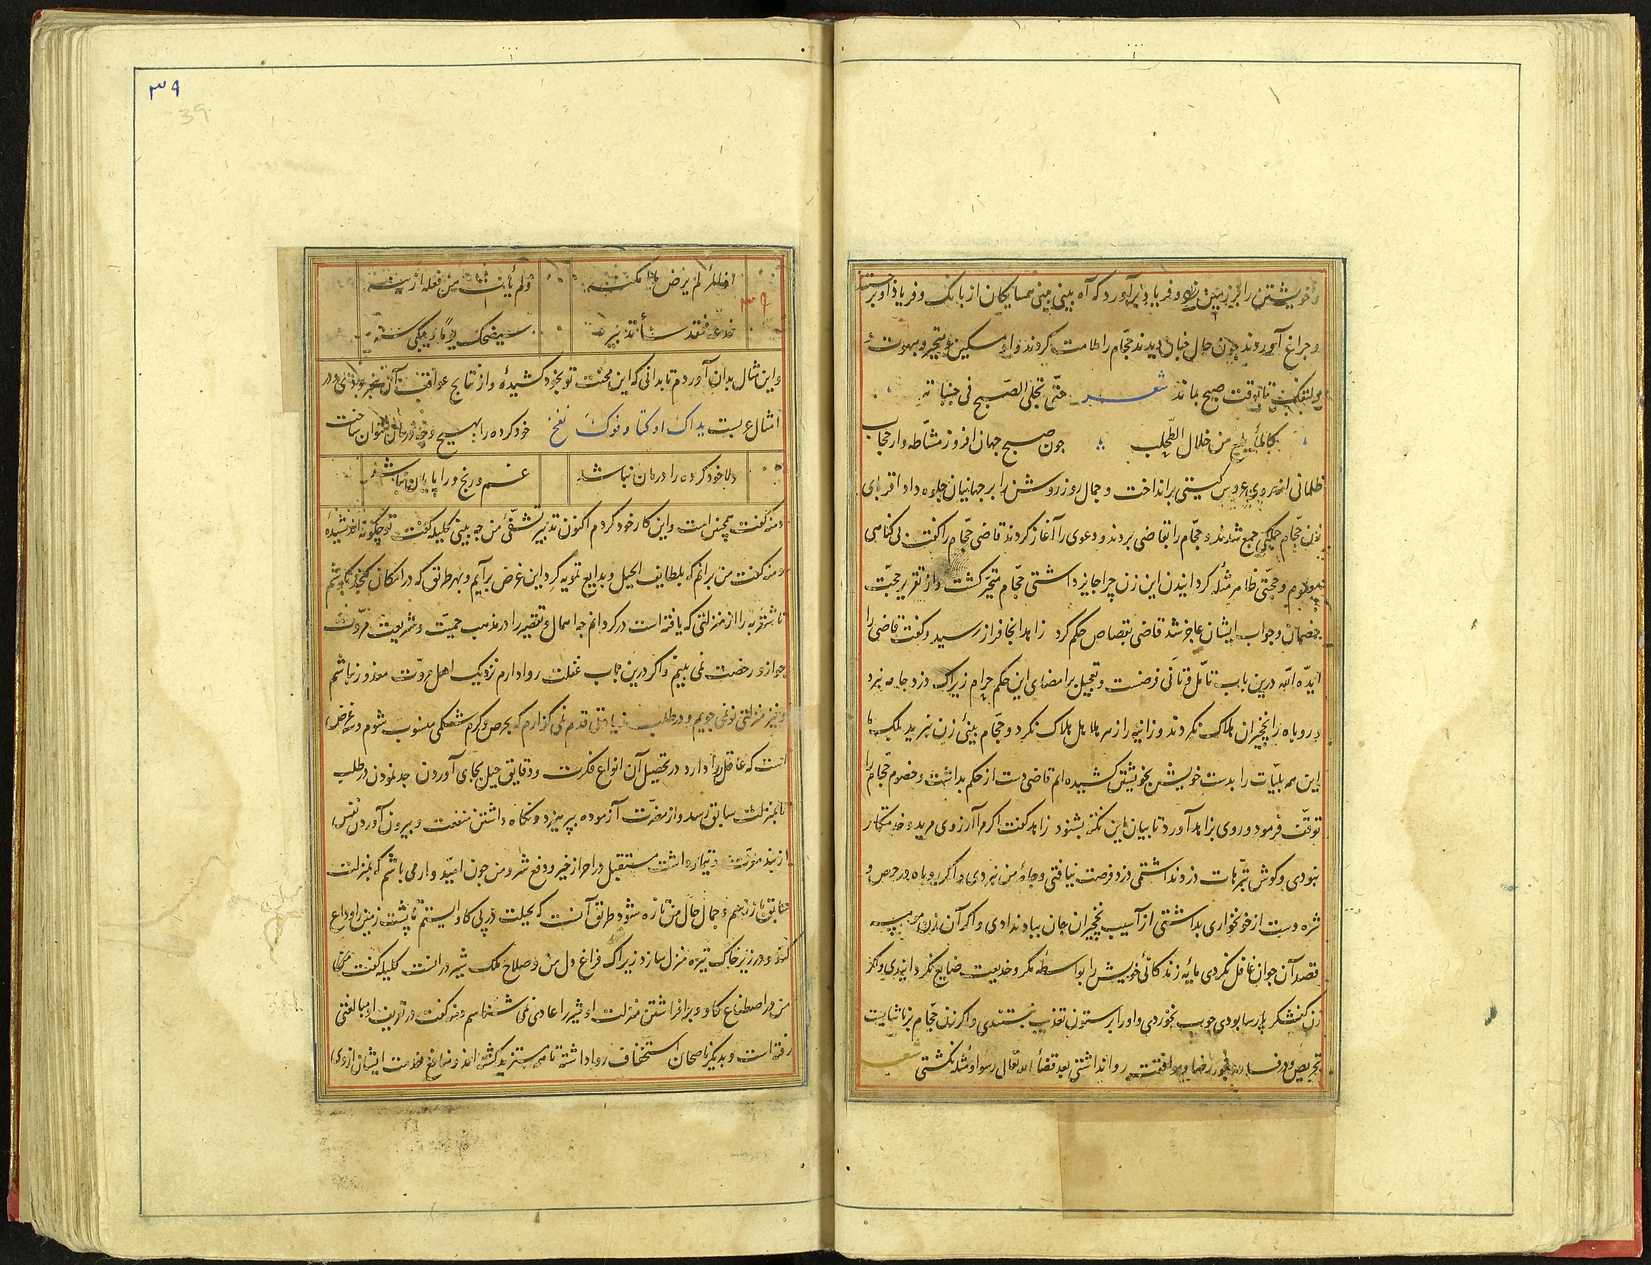 و خویشتن را بر زمین زد و فریاد برآورد که آه بینی بینی همسایگان از بانگ و فریاد او برجستند
و چراغ آوردند چون حال چنان دیدند حجّام را ملامت کردند و او مسکین متحیر و مبهوت
تا وقت صبح بماند شعر حتّی تجلی الصّبح فی جنباته
کالماء یلمح من خلال الطّحلب چون صبح جهان افروز مشّاطه وار حجاب
ظلمانی از روی عروس گیتی برانداخت و جمال روز روشن را بر جهانیان جلوه داد اقربای
زن حجّام جملگی جمع شدند و حجّام را بقاضی بردند و دعوی را آغاز کردند قاضی حجّام را گفت بی گناهی
معلوم و حجّتی ظاهر مثله گردانیدن این زن چرا جایز داشتی حجّام متحیّر گشت و از تقریر حجّت
خصمان و جواب ایشان عاجز شد قاضی بقصاص حکم کرد زاهد آنجا فراز رسید و گفت قاضی را
ایّده الله درین باب تامّل و تانّی فرضست و تعجیل بر امضای این حکم حرام زیراک دزد جامه نبرد
و روباه را نخچیران هلاک نکردند و زانیه را زهر هلاهل هلاک نکرد و حجّام بینی زن نبرید بلک ما
این همه بلیّات را بدست خویش بخویشتن کشیده ایم قاضی دست از حکم بداشت و خصوم حجّام را
توقّف فرمود و روی بزاهد آورد تا بیان این نکته بشنود زاهد گفت اگر مرا آرزوی مرید و خدمتکار
نبودی و گوش بترّهات دزد نداشتمی دزد فرصت نیافتی و جامه من نبردی و اگر روباه در حرص و
شره دست از خونخواری بداشتی از آسیب نخچیران جان بباد ندادی و اگر آن زن
قصد آن جوان غافل نکردی مایه زندگانی خویش را بواسطه مکر و خدیعت ضایع نگردانیدی و اگر
زن کفشگر پارسا بودی چوب نخوردی و او را بر ستون تعذیب نبستندی و اگر زن حجّام بر ناشایست
تحریض و در فساد و فجور رضا و موافقت روا نداشتی بعد قضاء الله تعالی رسوا و مثله نگشتی شعر
۳۹
39
۳۹
اذا المرء لم یرض ما امکنه ولم یأت من فعله ازینه
فدعه فقد ساء تدبیره سیضحک یوما و یبکی سنه
و این مثال بدان آوردم تا بدانی که این محنت تو بخود کشیده و از نتایج عواقب آن بی خبر بودی و در
امثال عربست یداک اوکتا و فوک نفخ خود کرده را بهیچ وجه درمان نتوان ساخت
دلا خود کرده را درمان نباشد غم و رنج ورا پایان نباشد
دمنه گفت همچنین است و این کار خود کردم اکنون تدبیر تشفّی من چه بینی کلیله گفت تو چگونه اندیشیده
دمنه گفت من برآنم که بلطایف الحیل و بدایع تمویه گرد این غرض برآیم و بهر طریق که در امکان گنجد بکوشم
تا شتربه را از منزلتی که یافته است درگردانم چه اهمال و تقصیر را در مذهب حمیّت و شریعت مروّت
جواز و رخصت نمی بینم و اگر درین باب غفلت روا دارم نزدیک اهل مروّت معذور نباشم
و نیز منزلتی نو نمی جویم و در طلب زیادتی قدم نمی گزارم که بحرص و گرم شکمی منسوب شوم و سه غرض
است که عاقل روا دارد در تحصیل آن انواع فکرت و دقایق حیل بجای آوردن جد نمودن در طلب
تا بمنزلت سابق رسد و از مضرّت آزموده بپرهیزد و نگاه داشتن منفعت و بیرون آوردن نفس
از بند موت و تیمار داشت مستقبل در احراز خیر و دفع شر و من چون امیدوار می باشم که بمنزلت
سابق باز رسم و جمال حال من تازه شود طریق آنست که بحیلت در پی گاو ایستم تا پشت زمین را وداع
کند و در زیر خاک تیره منزل سازد زیراک فراغ دل من و صلاح ملک شیر در آنست کلیله گفت
من در اصطناع گاو و برافراشتن منزلت او شیر را عادی نمی شناسم دمنه گفت در تقریب او مبالغتی
رفته است و بدیگر ناصحان استخفاف روا داشته تا مستزید گشته اند و منافع خدمت ایشان از وی